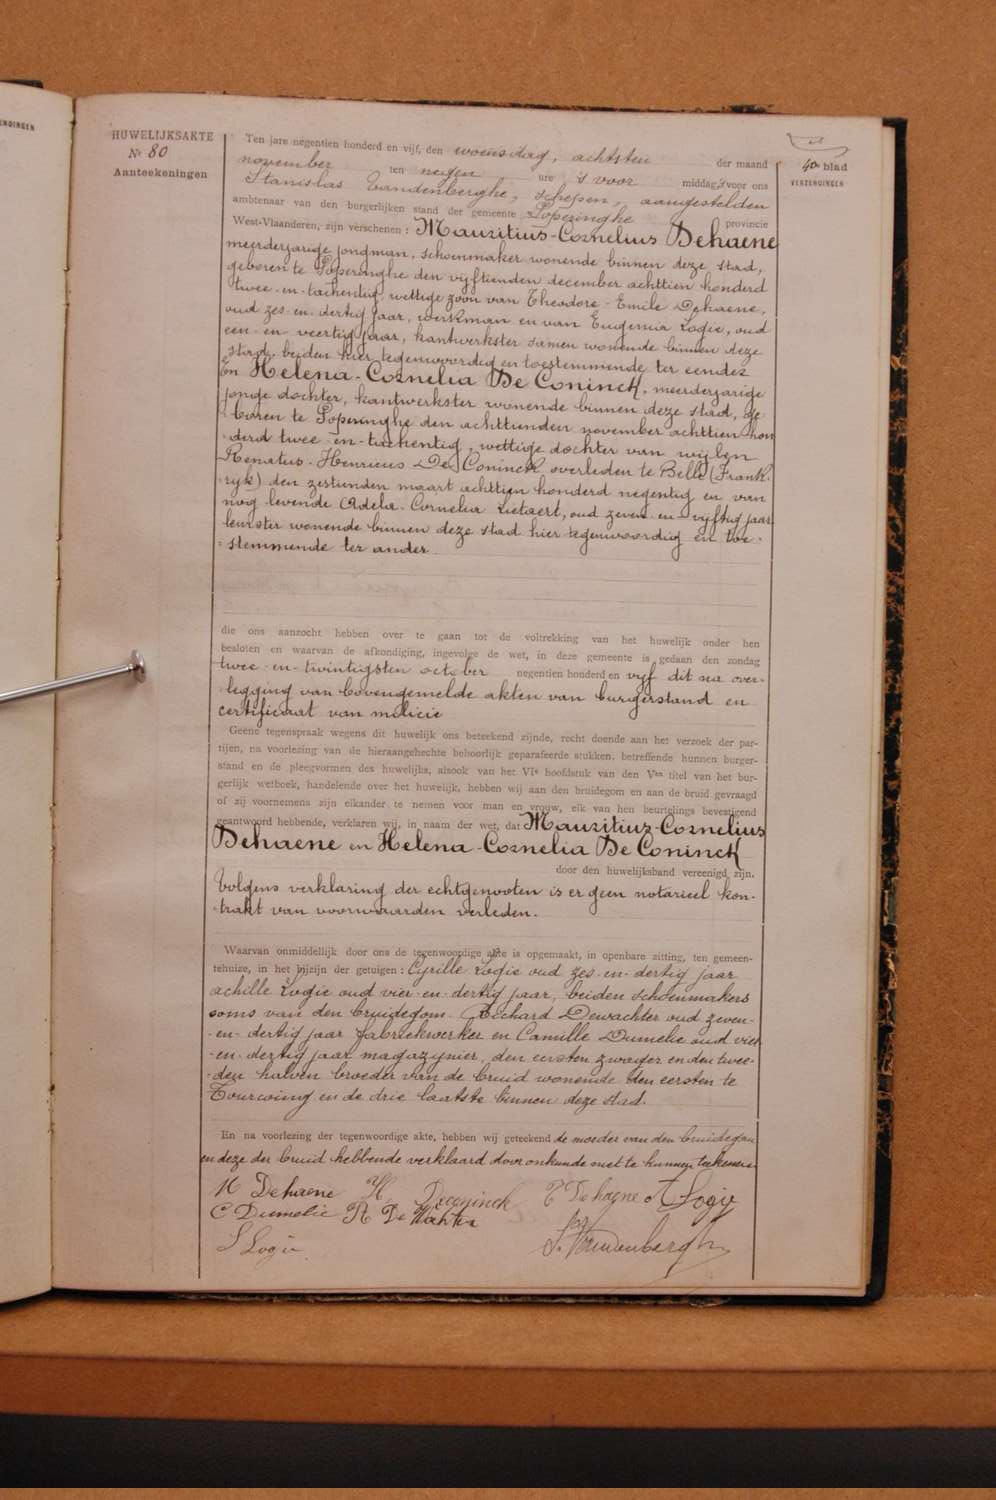 ENDINGEN
HUWELIJKSAKTE
Nr 80
Aanteekeningen
40e blad
VERZENDINGEN
Ten jare negentien honderd en vijf, den woensdag, achtsten der maand
november ten negen ure 's voor middag's voor ons
Stanislas Vandenberghe, schepen, aangestelden
ambtenaar van den burgerlijken stand der gemeente Poperinghe provincie
West-Vlaanderen, zijn verschenen : Mauritius-Cornelius Dehaene
meerderjarige jongman, schoenmaker wonende binnen deze stad,
geboren te Poperinghe den vijftienden december achttien honderd
twee-en-tachentig, wettige zoon van Theodore-Emile Dehaene,
oud zes-en-dertig jaar, werkman en van Eugenia Logie, oud
een-en-veertig jaar, kantwerkster samen wonende binnen deze
stad, beiden hier tegenwoordig en toestemmende ter eender
En Helena-Cornelia De Coninck, meerderjarige
jonge dochter, kantwerkster wonende binnen deze stad, ge-
boren te Poperinghe den achttienden november achttien hon
derd twee-en-tachentig, wettige dochter van wijlen
Renatus-Henricus De Coninck overleden te Belle (Frank-
rijk) den zestienden maart achttien honderd negentig en van
nog levende Adela-Cornelia Lietaert, oud zeven-en-vijftig jaar
leurster wonende binnen deze stad hier tegenwoordig en toe-
stemmende ter ander
die ons aanzocht hebben over te gaan tot de voltrekking van het huwelijk onder hen
besloten en waarvan de afkondiging, ingevolge de wet, in deze gemeente is gedaan den zondag
twee-en-twintigsten october negentien honderd en vijf dit na over-
legging van bovengemelde akten van burgerstand en
certificaat van milicie
Geene tegenspraak wegens dit huwelijk ons beteekend zijnde, recht doende aan het verzoek der par-
tijen, na voorlezing van de hieraangehechte behoorlijk geparafeerde stukken, betreffende hunnen burger-
stand en de pleegvormen des huwelijks, alsook van het VIe hoofdstuk van den Ven titel van het bur-
gerlijk wetboek, handelende over het huwelijk, hebben wij aan den bruidegom en aan de bruid gevraagd
of zij voornemens zijn elkander te nemen voor man en vrouw, elk van hen beurtelings bevestigend
geantwoord hebbende, verklaren wij, in naam der wet, dat Mauritius-Cornelius
Dehaene en Helena-Cornelia De Coninck
door den huwelijksband vereenigd zijn.
Volgens verklaring der echtgenooten is er geen notarieel kon-
trakt van voorwaarden verleden.
Waarvan onmiddellijk door ons de tegenwoordige akte is opgemaakt, in openbare zitting, ten gemeen-
tehuize, in het bijzijn der getuigen : Cyrille Logie oud zes-en-dertig jaar
achille Logie oud vier-en-dertig jaar, beiden schoenmakers
ooms van den bruidegom. Richard Dewachter oud zeven-
-en-dertig jaar fabriekwerker en Camille Dumelie oud vier
-en-dertig jaar magazijnier, den eersten zwager en den twee-
-den halven broeder van de bruid wonende den eersten te
Tourcoing en de drie laatste binnen deze stad.
En na voorlezing der tegenwoordige akte, hebben wij geteekend de moeder van den bruidegom
en deze der bruid hebbende verklaard door onkunde niet te kunnen teekenen
M Dehaene H. Deconinck T Dehaene A Logie
C Dumelie R De Wachter
S. Vandenberghe
Logie